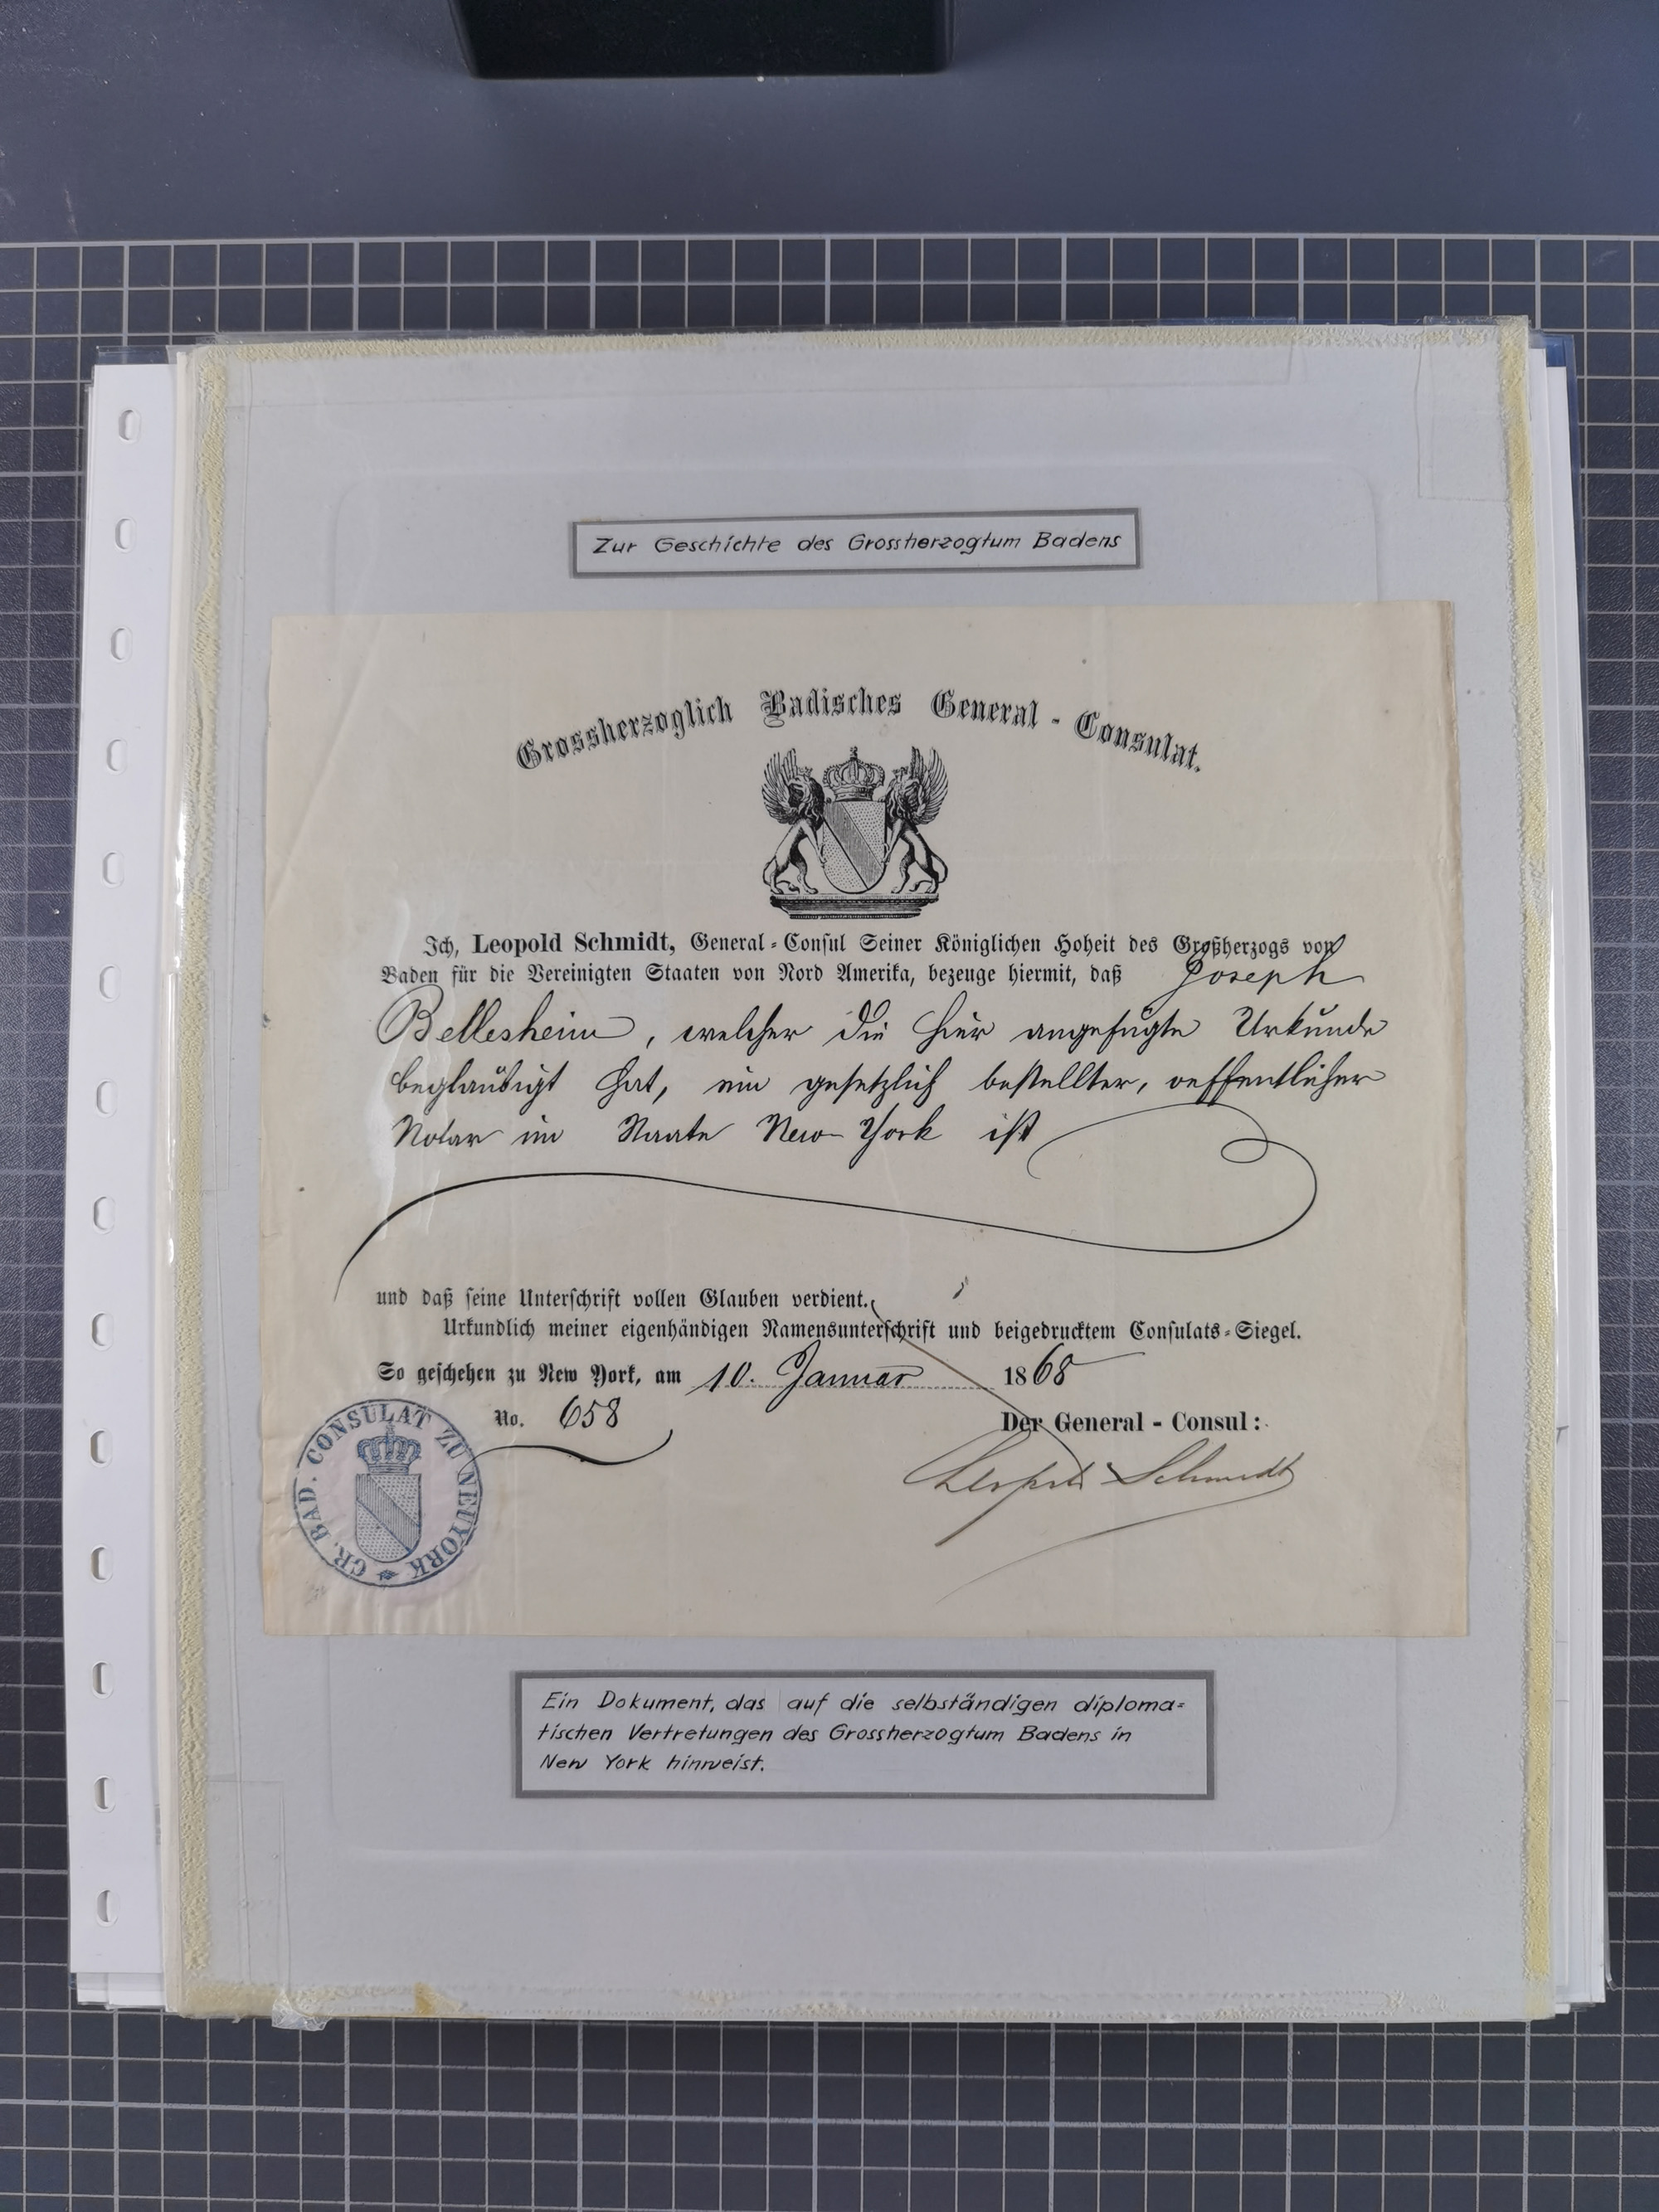 Zur Geschichte des Grossherzogtum Badens
Grossherzoglich Badisches General - Consulat.
Ich, Leopold Schmidt, General-Consul Seiner Königlichen Hoheit des Großherzogs von
Baden für die Vereinigten Staaten von Nord Amerika, bezeuge hiermit, daß Joseph
Bellesheim, welcher die hier angefügte Urkunde
beglaubigt hat, ein gesetzlich bestellter, oeffentlicher
Notar im Staate New-York ist
und daß seine Unterschrift vollen Glauben verdient.
Urkundlich meiner eigenhändigen Namensunterschrift und beigedrucktem Consulats-Siegel.
So geschehen zu New York, am 10. Januar 1868
No. 658
Der General - Consul:
Leopold Schmidt
GR. BAD. CONSULAT ZU NEUYORK
Ein Dokument, das auf die selbständigen diploma=
tischen Vertretungen des Grossherzogtum Badens in
New York hinweist.